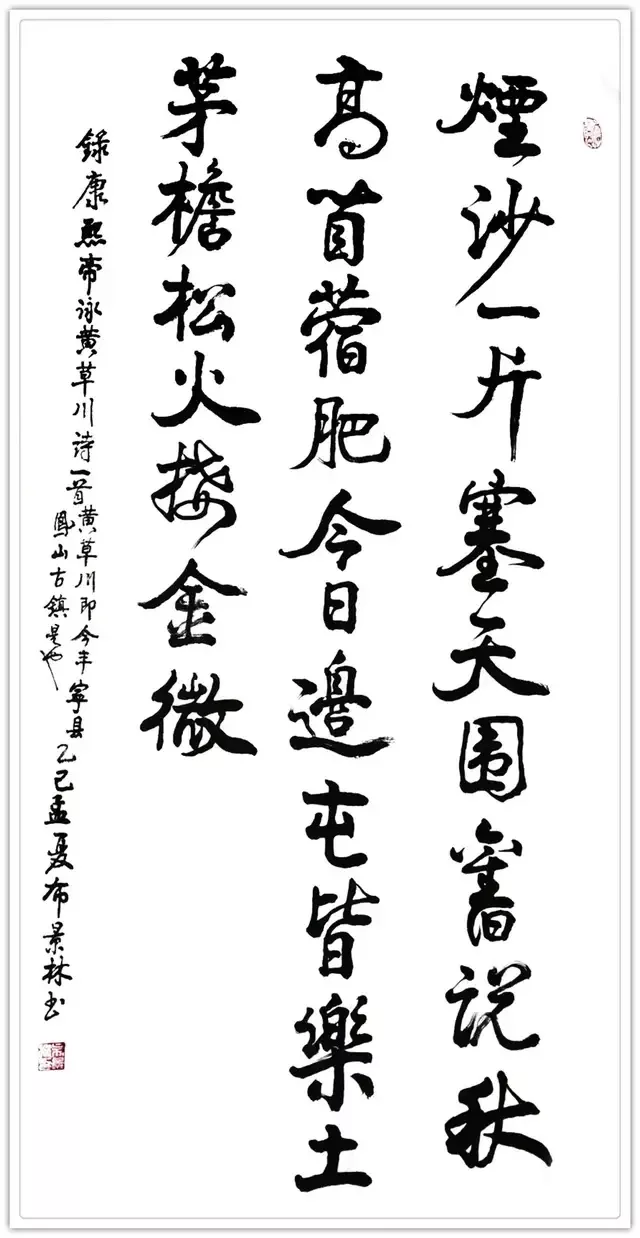 煙沙一片塞天围舊说秋
高苜蓿肥今日邊屯皆樂土
茅檐松火接金微
錄康熙帝詠黄草川诗一首黄草川即今丰寧县
鳳山古鎮是也
乙巳孟夏布景林书